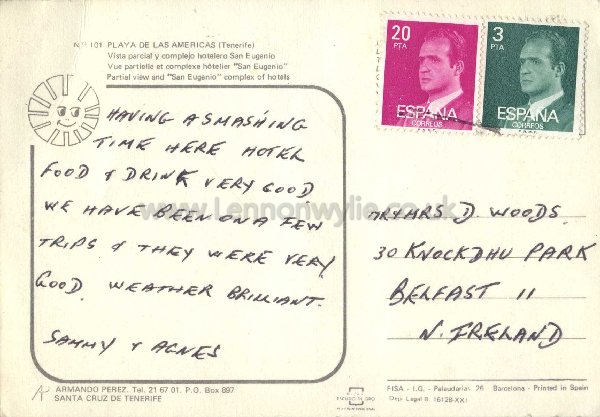 Nº 101 PLAYA DE LAS AMERICAS (Tenerife)
Vista parcial y complejo hotelero San Eugenio
Vue partielle et complexe hôtelier "San Eugenio"
Partial view and "San Eugenio" complex of hotels
20 PTA
ESPAÑA
CORREOS
3 PTA
ESPAÑA
CORREOS
HAVING A SMASHING
TIME HERE HOTEL
FOOD & DRINK VERY GOOD
WE HAVE BEEN ON A FEW
TRIPS & THEY WERE VERY
GOOD. WEATHER BRILLIANT.
SAMMY & AGNES
www.Lennonwylie.co.uk
MR & MRS D. WOODS.
30 KNOCKDHU PARK
BELFAST 11
N. IRELAND
ARMANDO PEREZ. Tel. 21 67 01. P.O. Box 897
SANTA CRUZ DE TENERIFE
ESCUDO DE ORO
FISA - I.G. - Palaudarias 26 Barcelona - Printed in Spain
Dep. Legal B. 16128-XXI